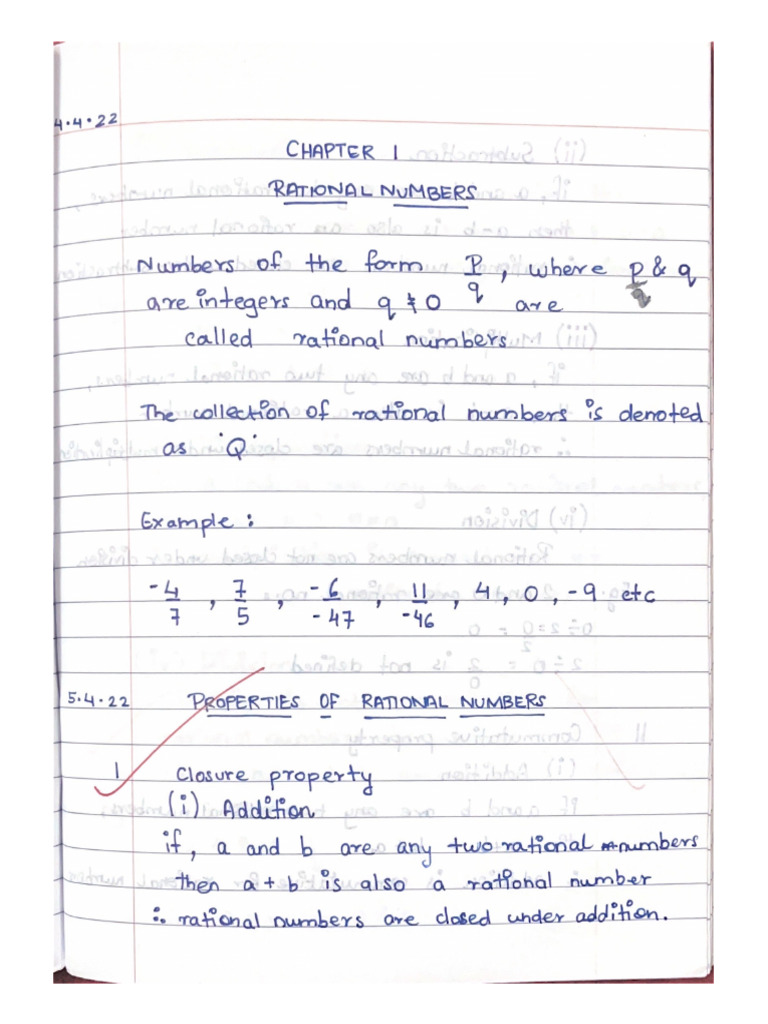 4.4.22
CHAPTER 1
RATIONAL NUMBERS
Numbers of the form p/q, where p & q
are integers and q ≠ 0 are
called rational numbers
The collection of rational numbers is denoted
as 'Q'
Example :
-4/7, 7/5, -6/-47, 11/-46, 4, 0, -9 etc
5.4.22 PROPERTIES OF RATIONAL NUMBERS
1 Closure property
(i) Addition
if, a and b are any two rational numbers
then a+b is also a rational number
∴ rational numbers are closed under addition.